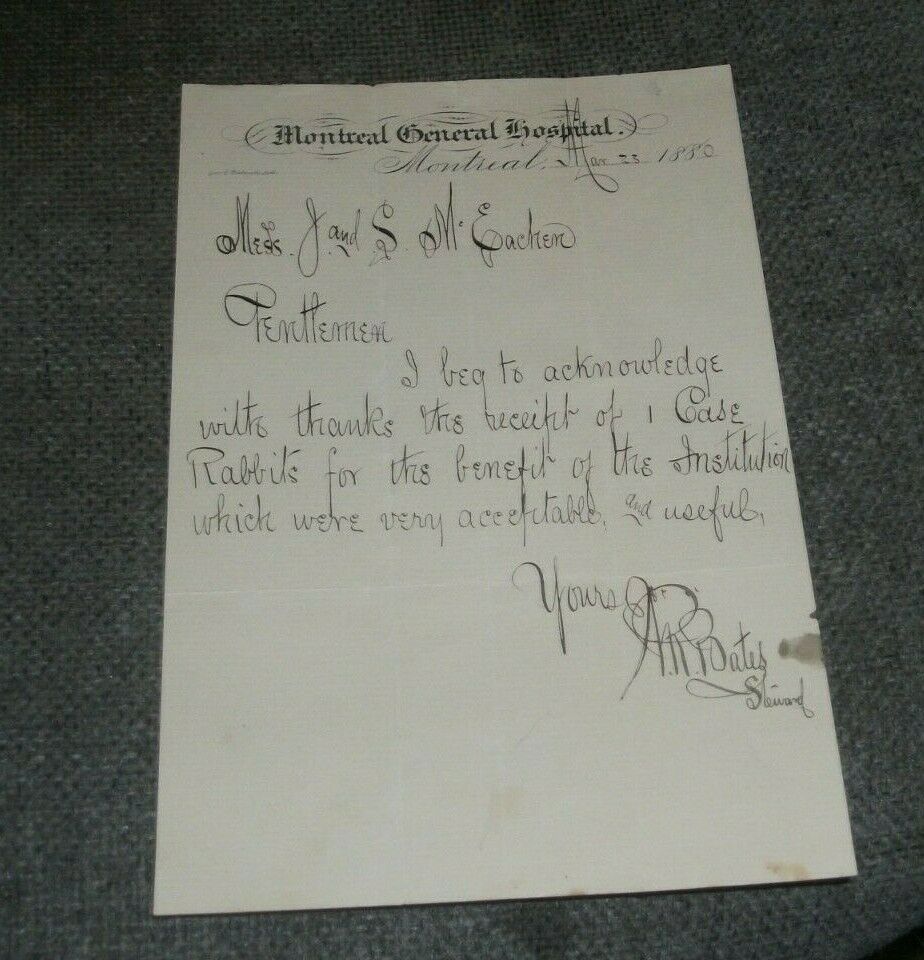 Montreal General Hospital.
Montreal, Mar 23 1880
Mess. J. and S. McEachen
Gentlemen
I beg to acknowledge
with thanks the receipt of 1 Case
Rabbits for the benefit of the Institution
which were very acceptable, and useful,
Yours
Bates
Steward